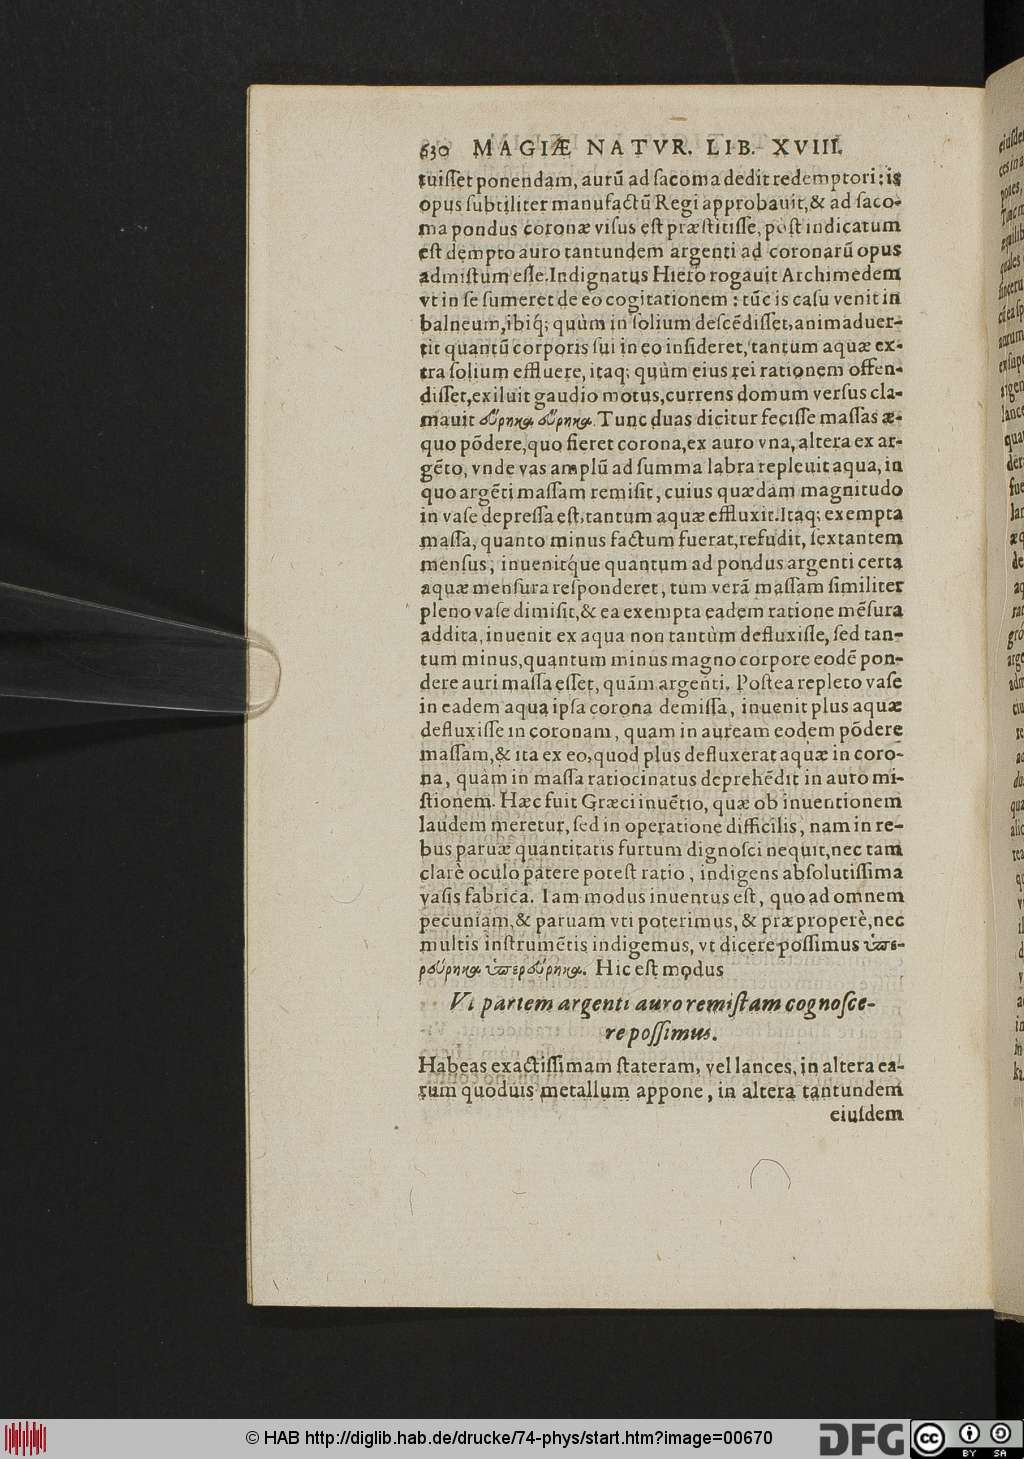 630 MAGIÆ NATVR. LIB. XVIII.
tuiſſet ponendam, aurũ ad ſacoma dedit redemptori: is
opus ſubtiliter manufactũ Regi approbauit, & ad ſaco-
ma pondus coronæ viſus eſt præſtitiſſe, pòſt indicatum
eſt dempto auro tantundem argenti ad coronarũ opus
admiſtum eſſe. Indignatus Hiero rogauit Archimedem
vt in ſe ſumeret de eo cogitationem: tũc is caſu venit in
balneum, ibiq́; quùm in ſolium deſcẽdiſſet, animaduer-
tit quantũ corporis ſui in eo inſideret, tantum aquæ ex-
tra ſolium effluere, itaq; quùm eius rei rationem offen-
diſſet, exiluit gaudio motus, currens domum verſus cla-
mauit εὕρηκα εὕρηκα. Tunc duas dicitur feciſſe maſſas æ-
quo põdere, quo fieret corona, ex auro vna, altera ex ar-
gẽto, vnde vas amplũ ad ſumma labra repleuit aqua, in
quo argẽti maſſam remiſit, cuius quædam magnitudo
in vaſe depreſſa eſt, tantum aquæ effluxit. Itaq; exempta
maſſa, quanto minus factum fuerat, refudit, ſextantem
menſus, inuenitq́ue quantum ad pondus argenti certa
aquæ menſura reſponderet, tum verã maſſam ſimiliter
pleno vaſe dimiſit, & ea exempta eadem ratione mẽſura
addita, inuenit ex aqua non tantùm defluxiſſe, ſed tan-
tum minus, quantum minus magno corpore eodẽ pon-
dere auri maſſa eſſet, quãm argenti. Poſtea repleto vaſe
in eadem aqua ipſa corona demiſſa, inuenit plus aquæ
defluxiſſe in coronam, quam in auream eodem põdere
maſſam, & ita ex eo, quod plus defluxerat aquæ in coro-
na, quàm in maſſa ratiocinatus deprehẽdit in auro mi-
ſtionem. Hæc fuit Græci inuẽtio, quæ ob inuentionem
laudem meretur, ſed in operatione difficilis, nam in re-
bus paruæ quantitatis furtum dignoſci nequit, nec tam
clarè oculo patere poteſt ratio, indigens abſolutiſſima
vaſis fabrica. Iam modus inuentus eſt, quo ad omnem
pecuniam, & paruam vti poterimus, & præproperè, nec
multis inſtrumẽtis indigemus, vt dicere poſſimus ὑπε-
ρεύρηκα ὑπερεύρηκα. Hic eſt modus
Vt partem argenti auro remiſtam cognoſce-
re poſſimus.
Habeas exactiſſimam ſtateram, vel lances, in altera ea-
rum quoduis metallum appone, in altera tantundem
eiuſdem
© HAB http://diglib.hab.de/drucke/74-phys/start.htm?image=00670
DFG
cc BY SA